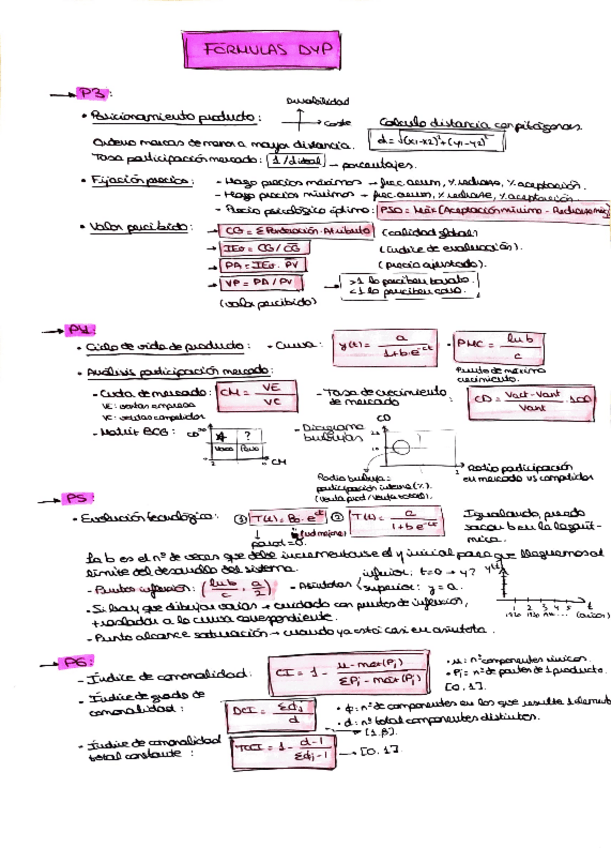 FÓRMULAS DYP
→ P3:
• Posicionamiento producto:
Durabilidad
Coste
Cálculo distancia con pitágoras.
Ordeno marcas de menor a mayor distancia.
d = √(x1-x2)²+(y1-y2)²
Tasa participación mercado: 1/d ideal → porcentajes.
• Fijación precios: - Hago precios máximos → frec. acum, % rechazo, % aceptación.
- Hago precios mínimos → frec. acum, % rechazo, % aceptación
- Precio psicológico óptimo: PSO = Máx (Aceptación mínimo - Rechazo máx
• Valor percibido: → CG = Σ Ponderación · Atributo (calidad global)
→ IEv = CG / C̅G̅ (índice de evaluación).
→ PA = IEv · P̅V̅ (precio ajustado).
→ VP = PA / PV → >1 lo perciben barato.
<1 lo perciben caro.
(valor percibido)
→ P4:
• Ciclo de vida de producto: • Curva: y(t) = a / 1+b·e^-ct • PMC = ln b / c
Punto de máximo crecimiento.
• Análisis participación mercado:
- Cuota de mercado: CM = VE / VC
VE: ventas empresa
VC: ventas competidor
- Tasa de crecimiento de mercado
CD = Vact - Vant / Vant · 100
- Matriz BCG: CD
?
Vaca Perro
CM
- Diagrama burbujas
CD
→ Ratio participación en mercado vs competidor
Radio burbuja = participación interna (%).
(venta prod / venta total).
→ P5:
• Evolución tecnológica: ① T(t) = B0 · e^ct ② T(t) = a / 1+b·e^-ct
Igualando, puedo sacar b en la logística.
para t=0.
La b es el nº de veces que debe incrementarse el y inicial para que lleguemos al límite del desarrollo del sistema.
- Puntos inflexión: (ln b / c, a / 2) - Asíntotas inferior: t=0 → y?
superior: y = a.
y(t)
1 2 3 4 5 t
(años)
- Si hay que dibujar varias → cuidado con puntos de inflexión,
trasladar a la curva correspondiente.
- Punto alcance saturación → cuando ya está casi en asíntota.
→ P6:
- Índice de comonalidad: CI = 1 - u - max(Pj) / ΣPj - max(Pj)
• u: nº componentes únicos.
• Pj = nº de partes de 1 producto.
[0, 1].
- Índice de grado de comonalidad:
DCI = Σφj / d
• φ: nº de componentes en los que resulta 1 element
• d: nº total componentes distintos.
→ [1, β].
- Índice de comonalidad total constante:
TCCI = 1 - d-1 / Σφj-1 → [0, 1].